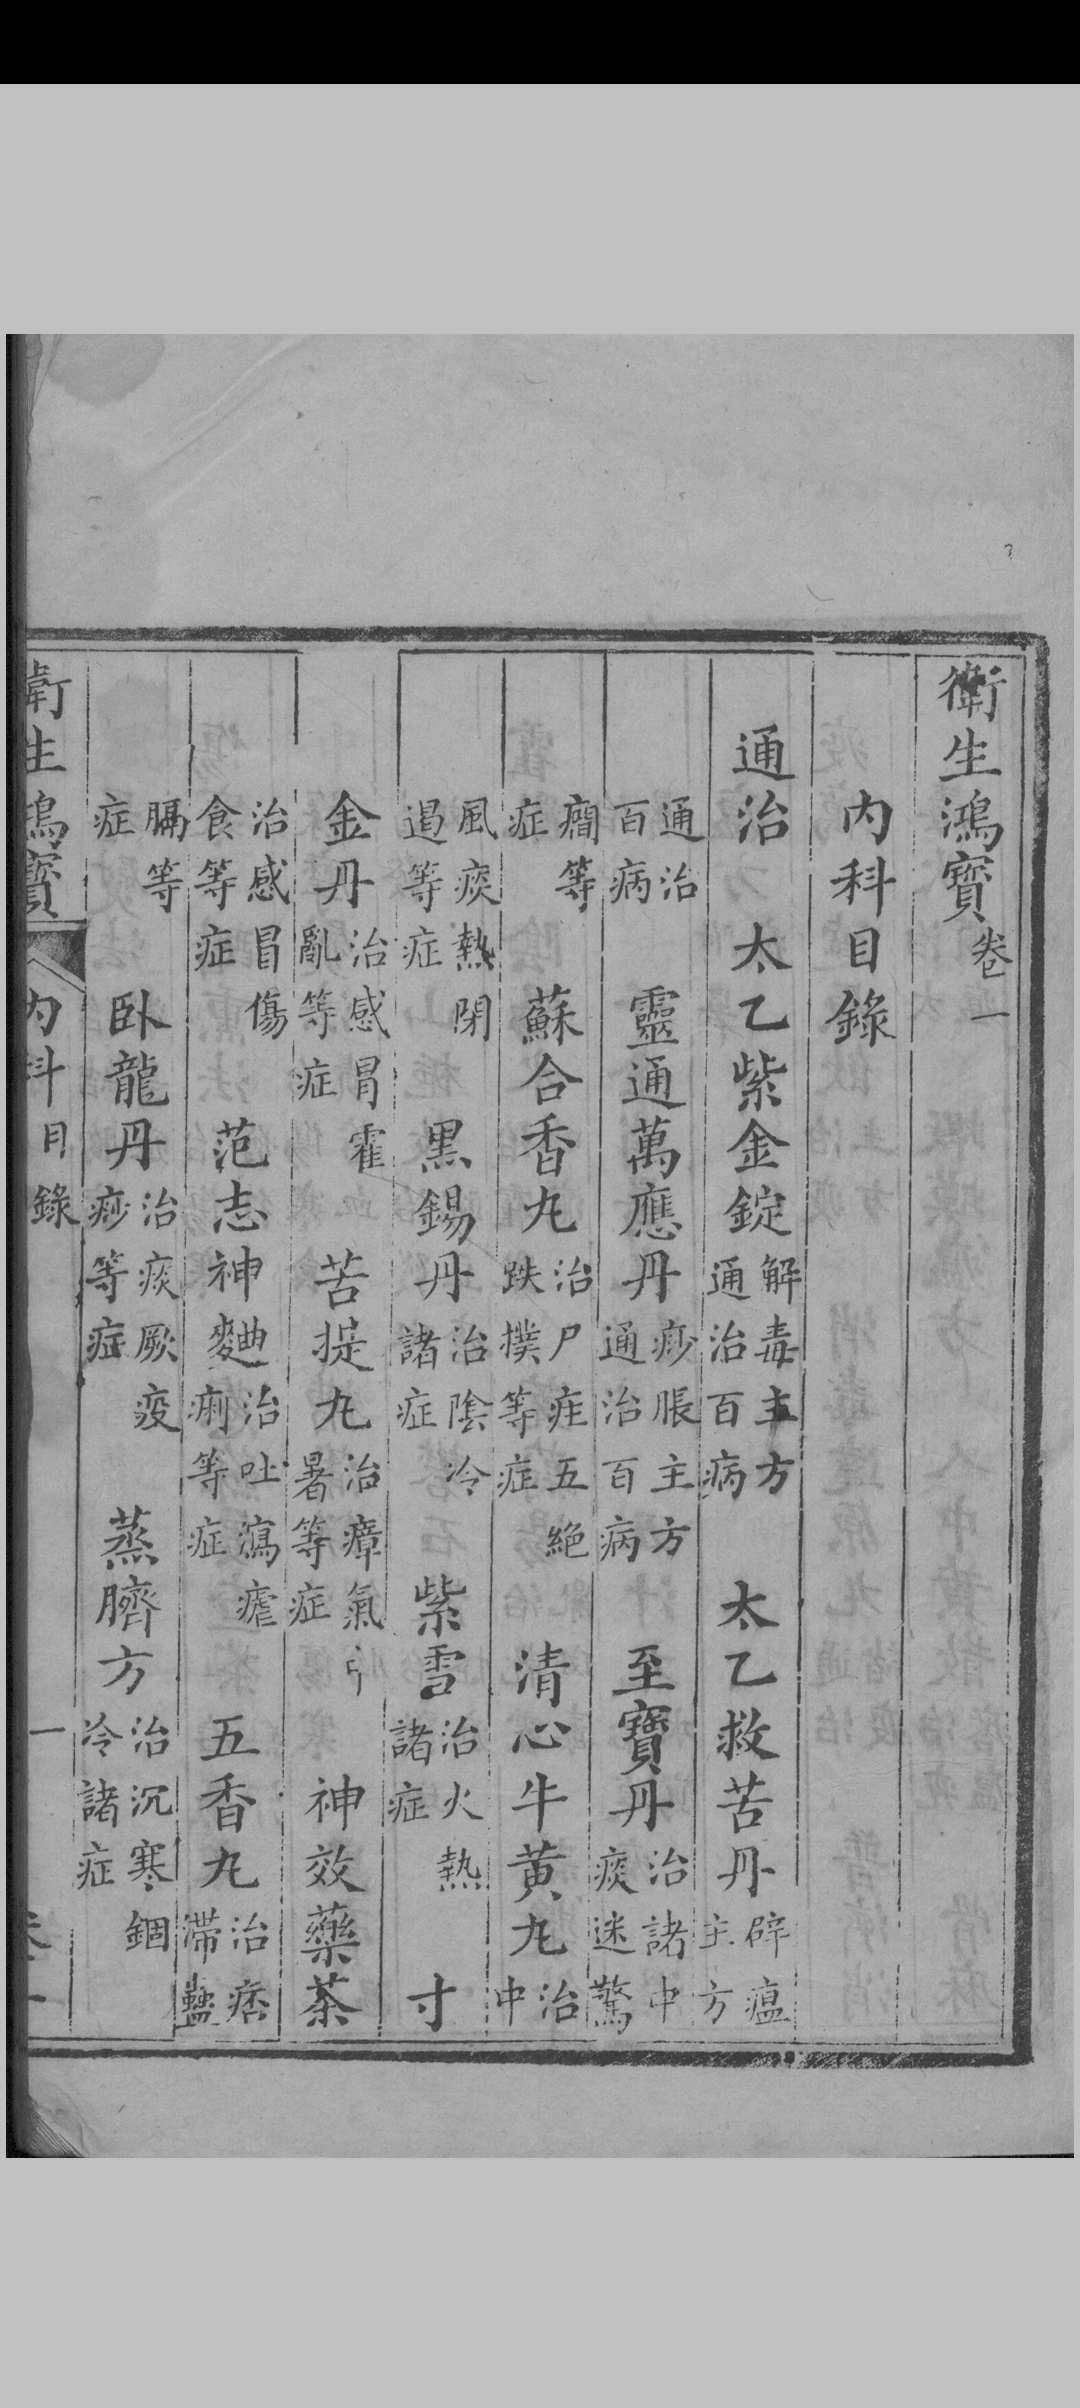 衛生鴻寶卷一
內科目錄
通治　太乙紫金錠解毒主方通治百病　太乙救苦丹辟瘟主方
通治百病　靈通萬應丹痧脹主方通治百病　至寶丹治諸中痰迷驚
癇等症　蘇合香丸治尸疰五絕跌撲等症　清心牛黃丸治中
風痰熱閉遏等症　黑錫丹治陰冷諸症　紫雪治火熱諸症　寸
金丹治感冒霍亂等症　苦提丸治瘴氣暑等症　神效藥茶
治感冒傷食等症　范志神麯治吐瀉瘧痢等症　五香丸治痞滯蠱
膈等症　臥龍丹治痰厥疫痧等症　蒸臍方治沉寒錮冷諸症
衛生鴻寶　內科目錄　一